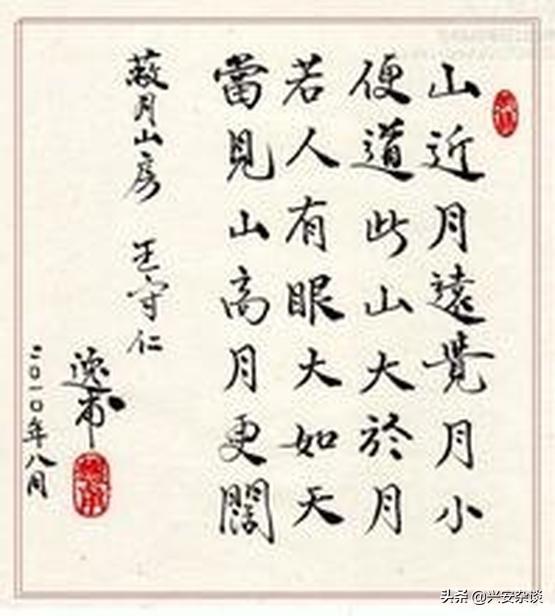 山近月遠覺月小
便道此山大於月
若人有眼大如天
當見山高月更闊
蔽月山房 王守仁
二〇一〇年八月
头条 @兴安杂谈